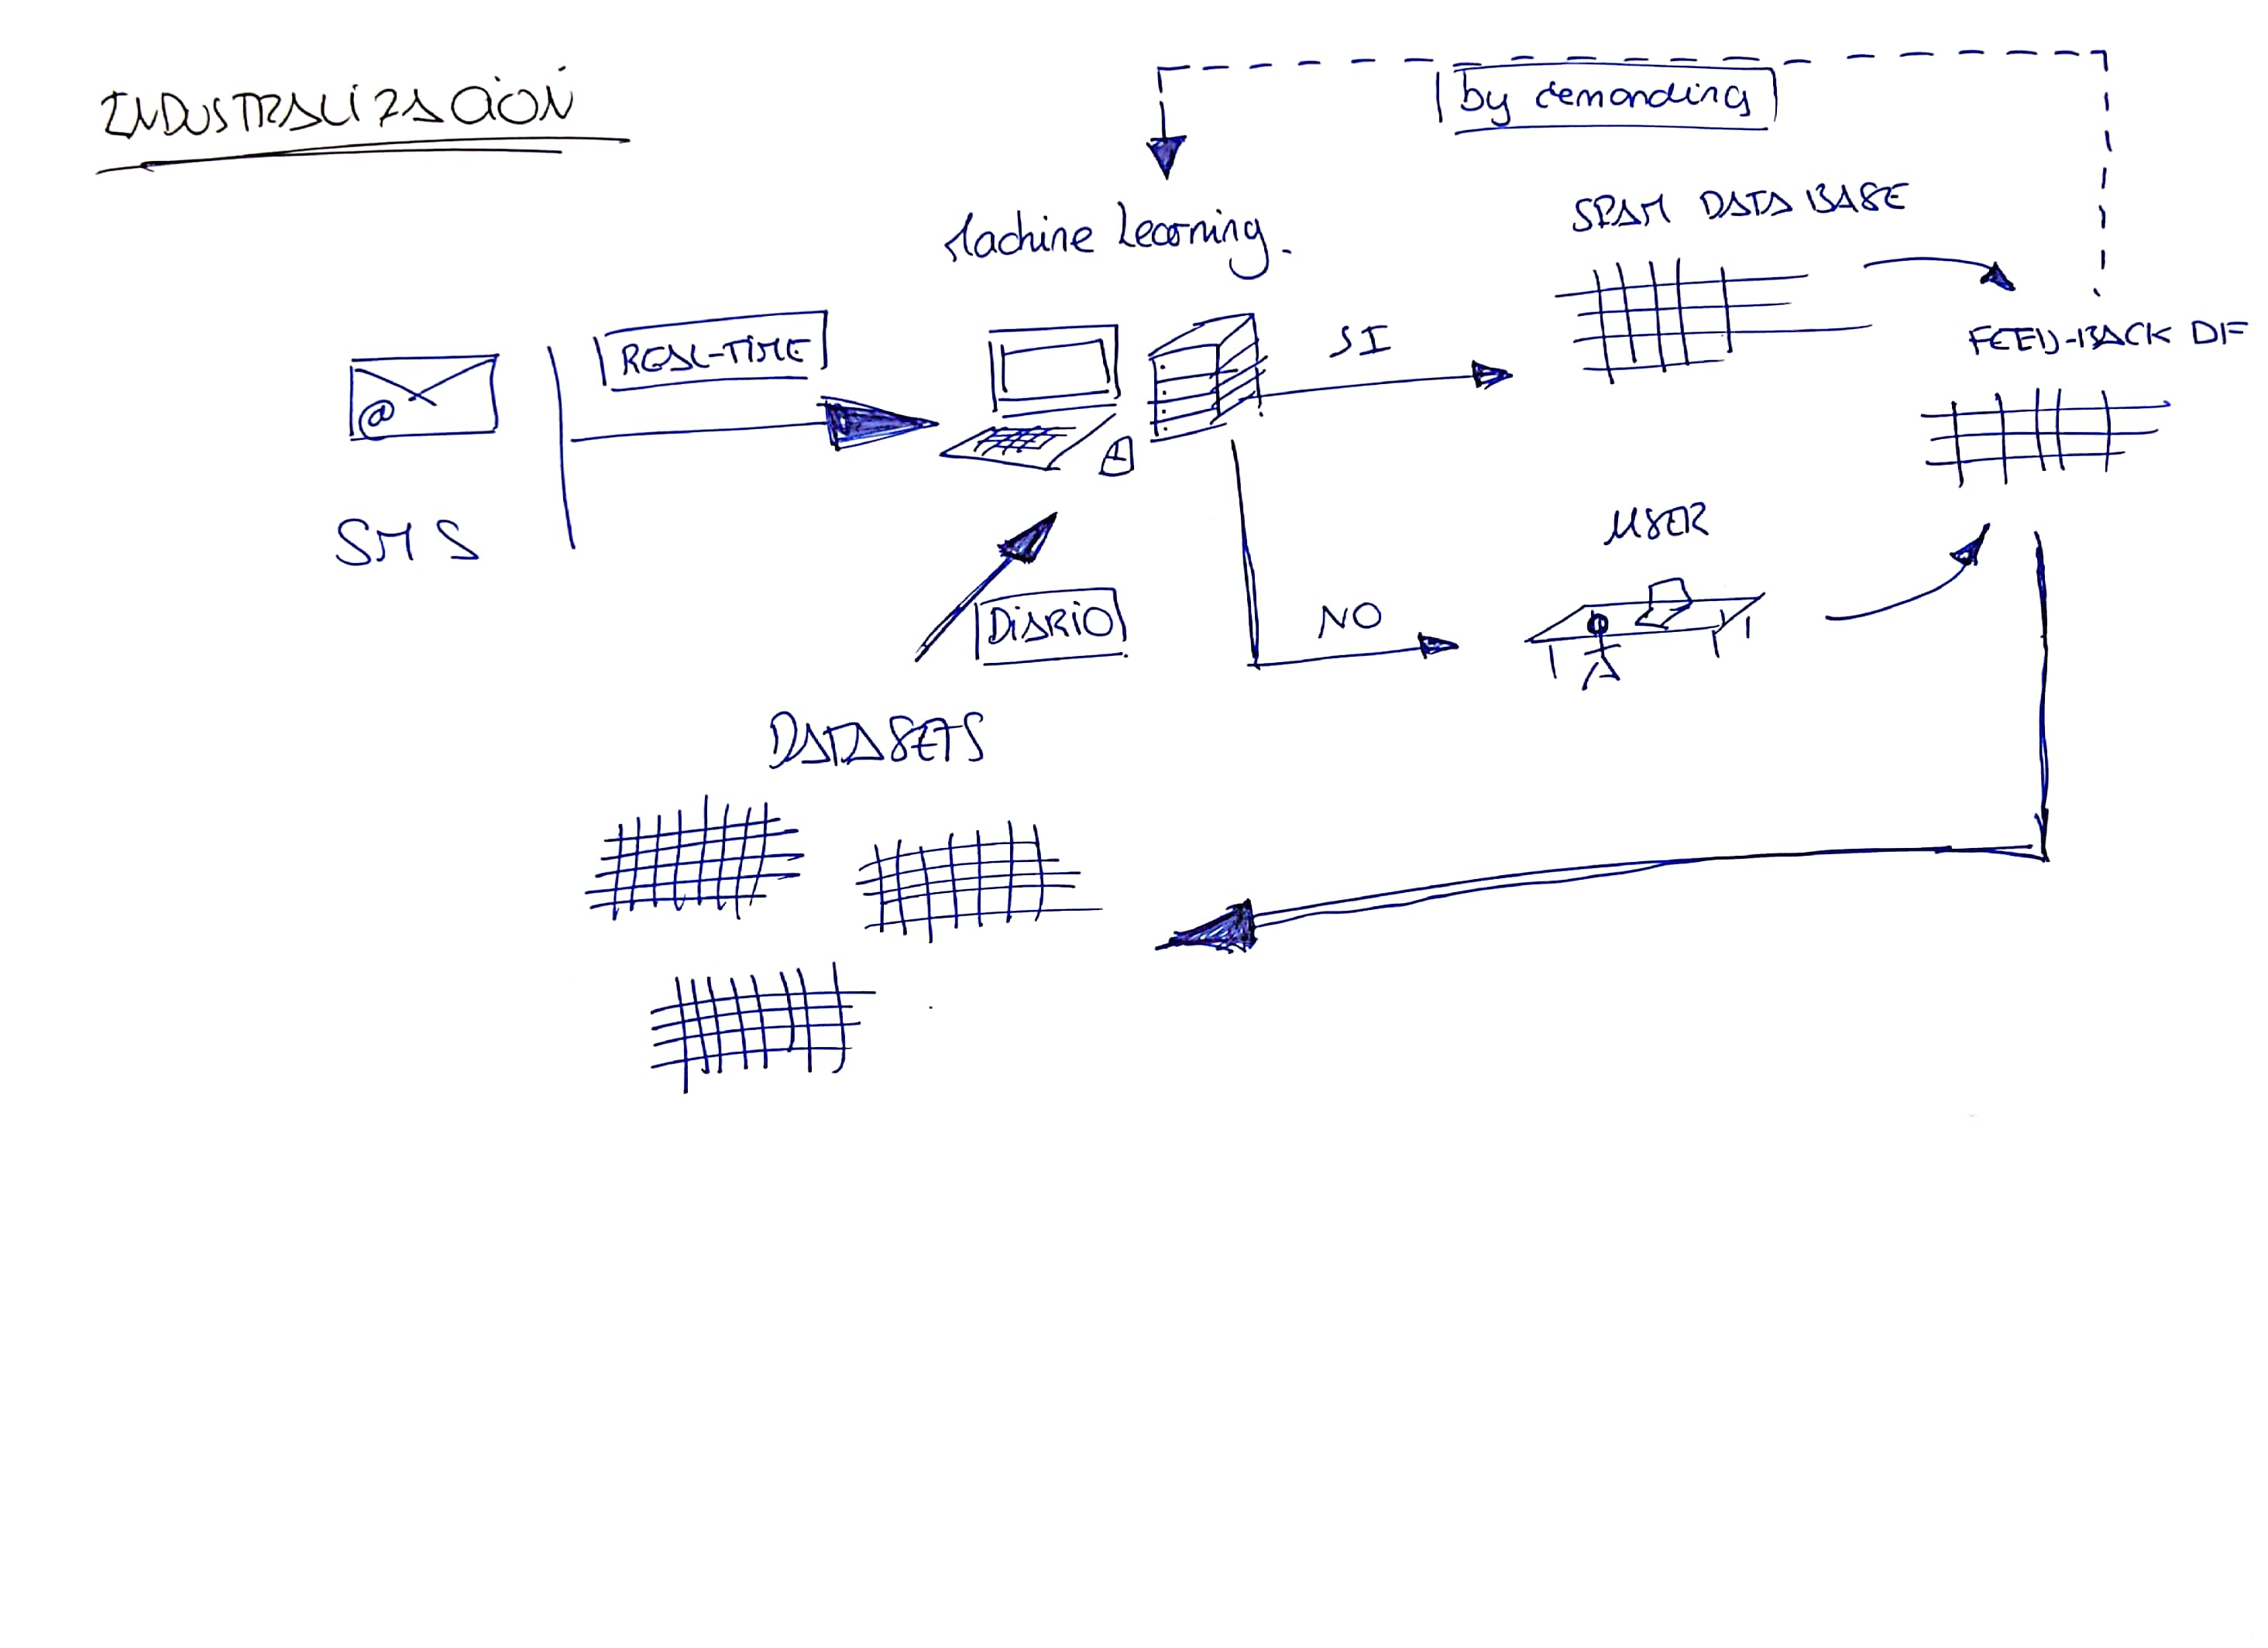 INDUSTRALIZACIÓN
by demanding
Machine Learning.
SPAM DATABASE
REAL-TIME
SI
FEED-BACK DF
@
SMS
USER
DIARIO
NO
DATASETS